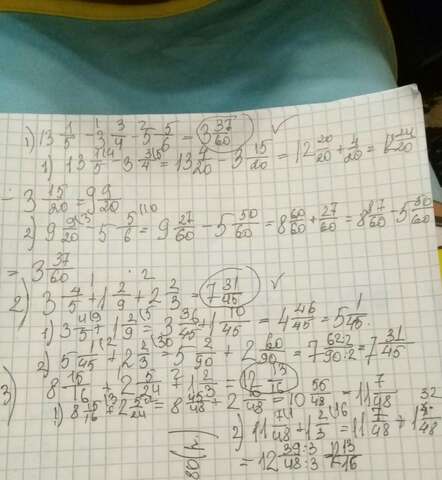 1) 13 1/5 - 3 3/4 - 5 5/6 = 3 37/60
1) 13 1/5 - 3 3/4 = 13 4/20 - 3 15/20 = 12 20/20 + 4/20 = 12 24/20
- 3 15/20 = 9 9/20
2) 9 9/20 - 5 5/6 = 9 27/60 - 5 50/60 = 8 60/60 + 27/60 = 8 87/60 - 5 50/60
= 3 37/60
2) 3 4/5 + 1 2/9 + 2 2/3 = 7 31/45
1) 3 4/5 + 1 2/9 = 3 36/45 + 1 10/45 = 4 46/45 = 5 1/45
2) 5 1/45 + 2 2/3 = 5 2/90 + 2 60/90 = 7 62:2/90:2 = 7 31/45
3) 8 15/16 + 2 5/24 + 1 2/3 = 12 13/16
1) 8 15/16 + 2 5/24 = 8 45/48 + 2 10/48 = 10 55/48 = 11 7/48
2) 11 7/48 + 1 2/3 = 11 7/48 + 1 32/48
= 12 39:3/48:3 = 12 13/16